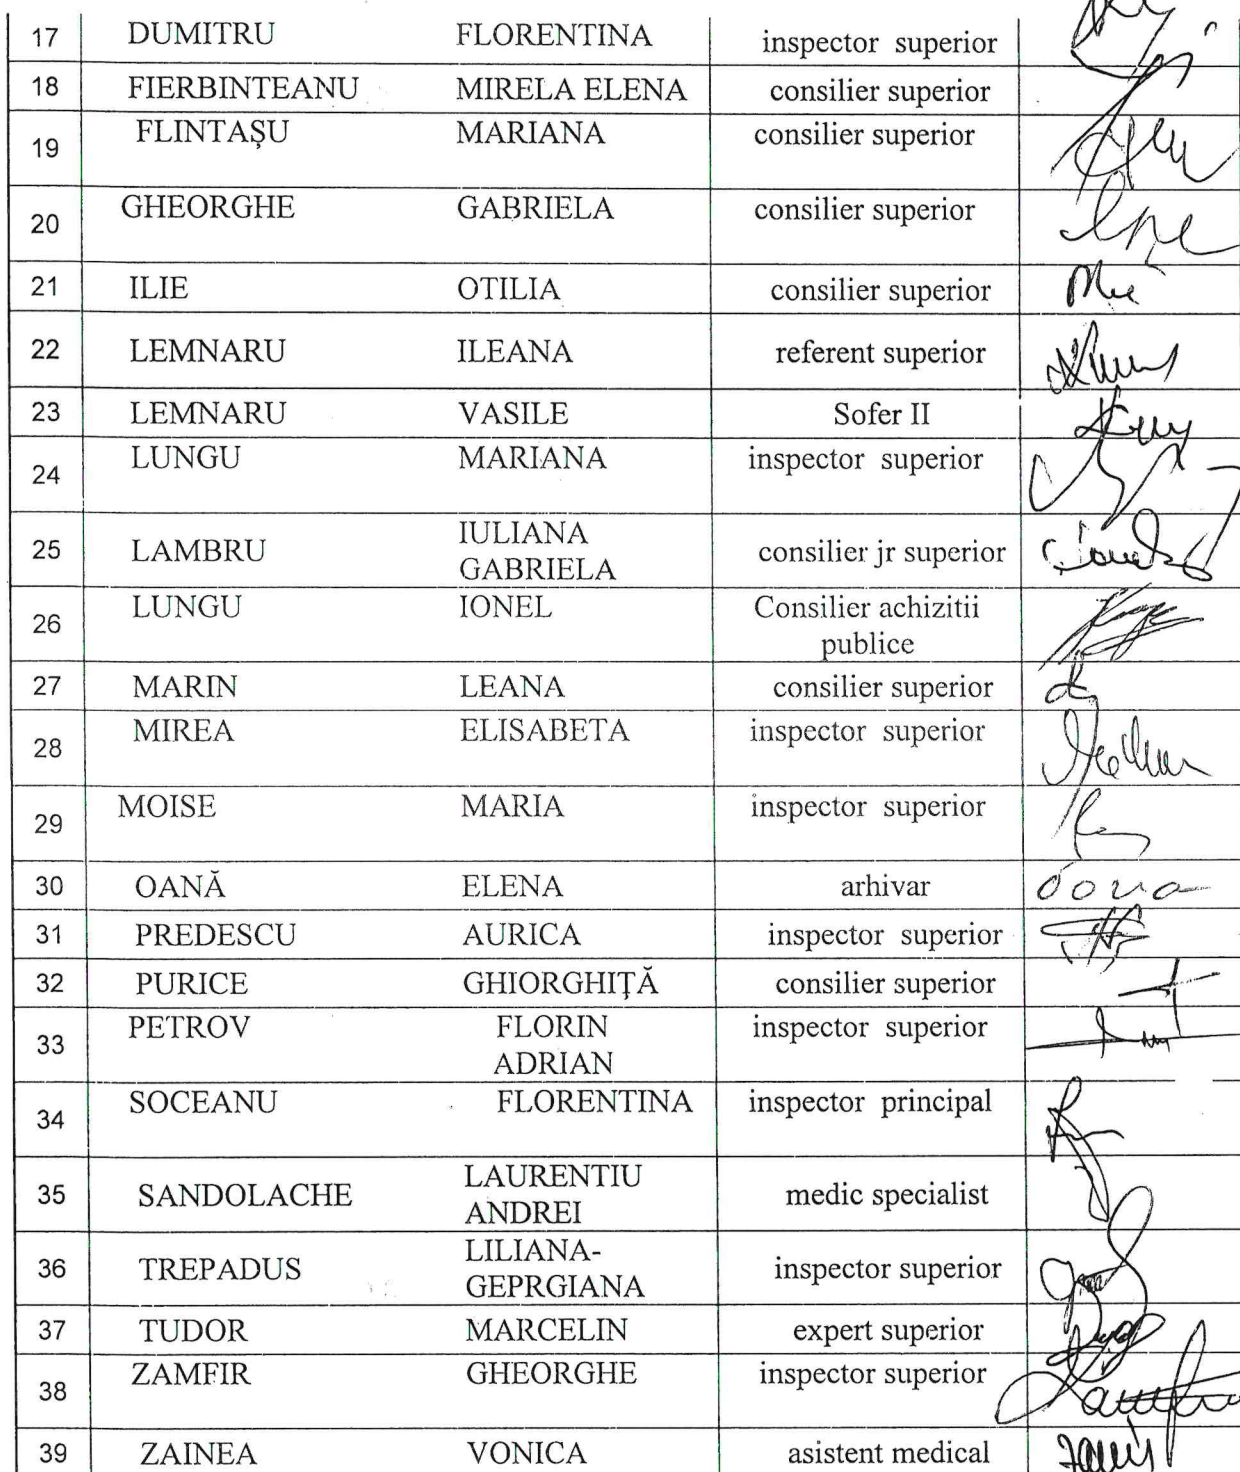 17 DUMITRU FLORENTINA inspector superior
18 FIERBINTEANU MIRELA ELENA consilier superior
19 FLINTAŞU MARIANA consilier superior
20 GHEORGHE GABRIELA consilier superior
21 ILIE OTILIA consilier superior
22 LEMNARU ILEANA referent superior
23 LEMNARU VASILE Sofer II
24 LUNGU MARIANA inspector superior
25 LAMBRU IULIANA consilier jr superior
GABRIELA
26 LUNGU IONEL Consilier achizitii
publice
27 MARIN LEANA consilier superior
28 MIREA ELISABETA inspector superior
29 MOISE MARIA inspector superior
30 OANĂ ELENA arhivar
31 PREDESCU AURICA inspector superior
32 PURICE GHIORGHIŢĂ consilier superior
33 PETROV FLORIN inspector superior
ADRIAN
34 SOCEANU FLORENTINA inspector principal
35 SANDOLACHE LAURENTIU medic specialist
ANDREI
36 TREPADUS LILIANA- inspector superior
GEPRGIANA
37 TUDOR MARCELIN expert superior
38 ZAMFIR GHEORGHE inspector superior
39 ZAINEA VONICA asistent medical